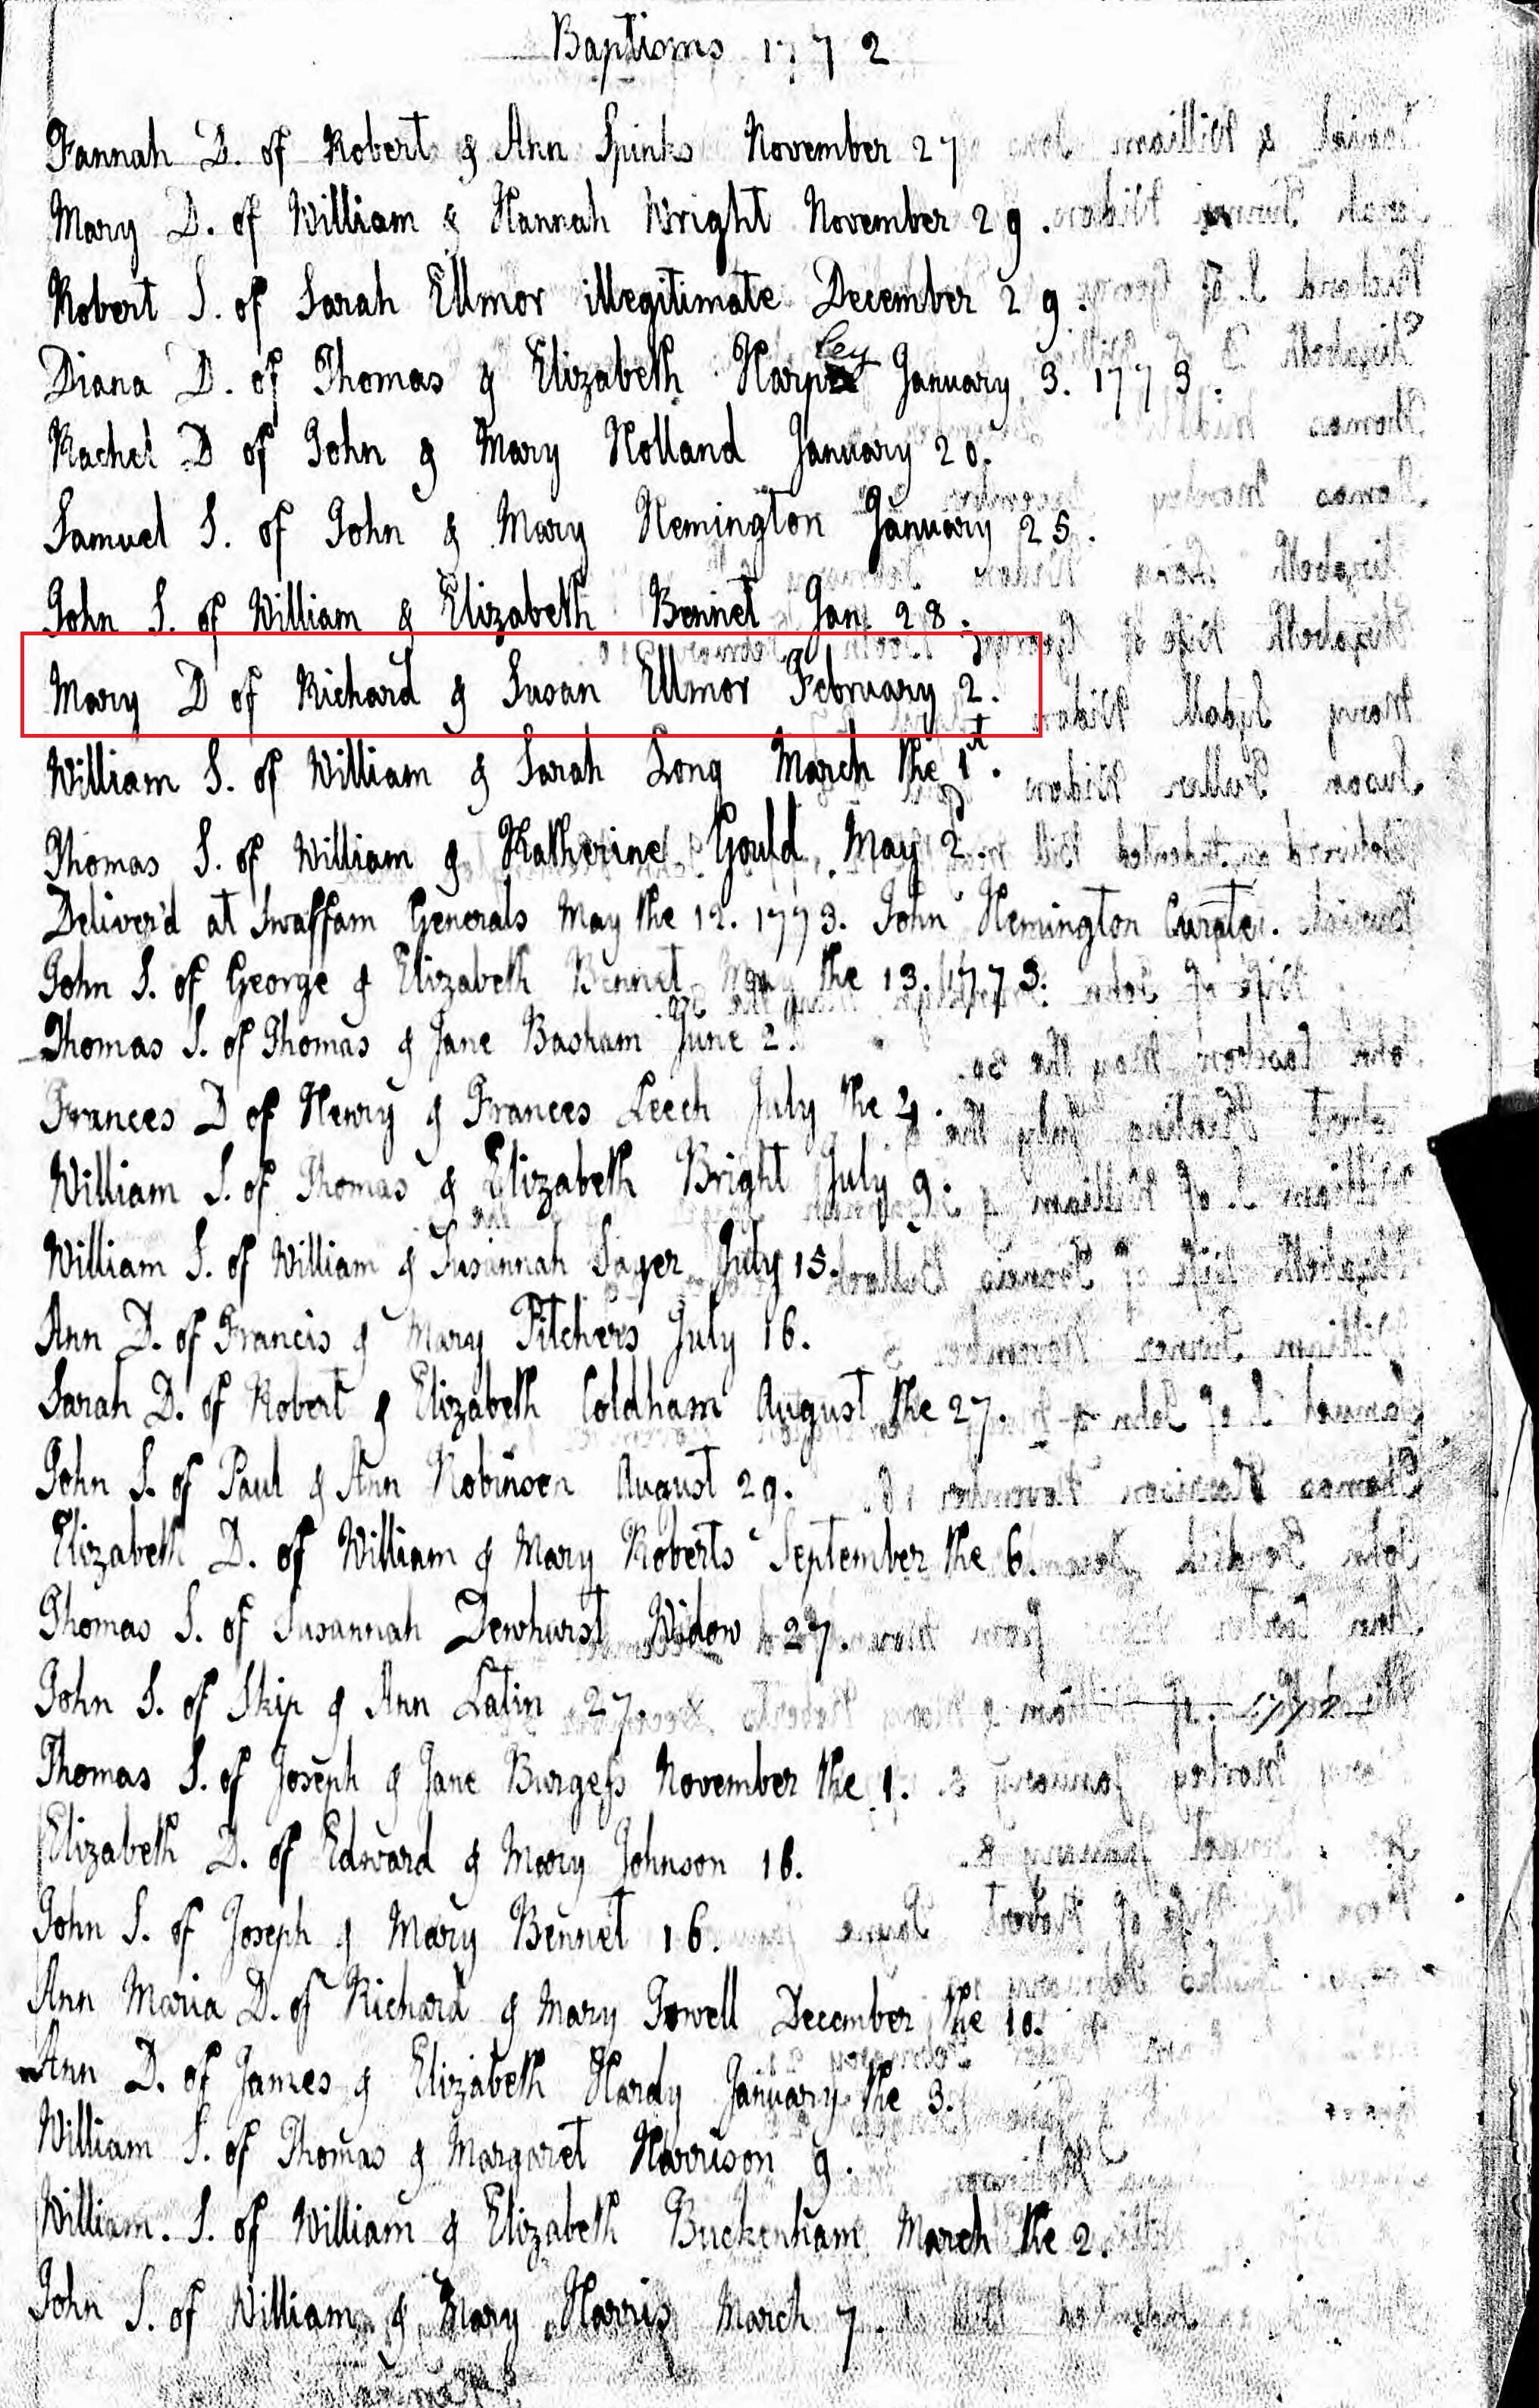 Baptisms 1772
Hannah D. of Robert & Ann Spinks November 27
Mary D. of William & Hannah Wright November 29.
Robert S. of Sarah Ellmor illegitimate December 29.
ley
Diana D. of Thomas & Elizabeth Harp January 3. 1773.
Rachel D of John & Mary Holland January 20.
Samuel S. of John & Mary Hemington January 25.
John S. of William & Elizabeth Bennet Jan. 28.
Mary D of Richard & Susan Ellmor February 2.
William S. of William & Sarah Long March the 1st.
Thomas S. of William & Katherine Gould May 2d.
Deliver'd at Swaffam Generals May the 12. 1773. John Hemington Curate.
John S. of George & Elizabeth Bennet May the 13. 1773.
Thomas S. of Thomas & Jane Basham June 2.
Frances D of Henry & Frances Leech July the 4.
William S. of Thomas & Elizabeth Bright July 9.
William S. of William & Susannah Sayer July 15.
Ann D. of Francis & Mary Pilchers July 16.
Sarah D. of Robert & Elizabeth Coldham August the 27.
John S. of Paul & Ann Robinson August 29.
Elizabeth D. of William & Mary Roberts September the 6.
Thomas S. of Susannah Dewhurst Widow 27.
John S. of Skip & Ann Latin 27.
Thomas S. of Joseph & Jane Burgess November the 1.
Elizabeth D. of Edward & Mary Johnson 16.
John S. of Joseph & Mary Bennet 16.
Ann Maria D. of Richard & Mary Powell December the 10.
Ann D. of James & Elizabeth Hardy January the 3.
William S. of Thomas & Margaret Harrison 9.
William. S. of William & Elizabeth Buckenham March the 2.
John S. of William & Mary Harris March 7.